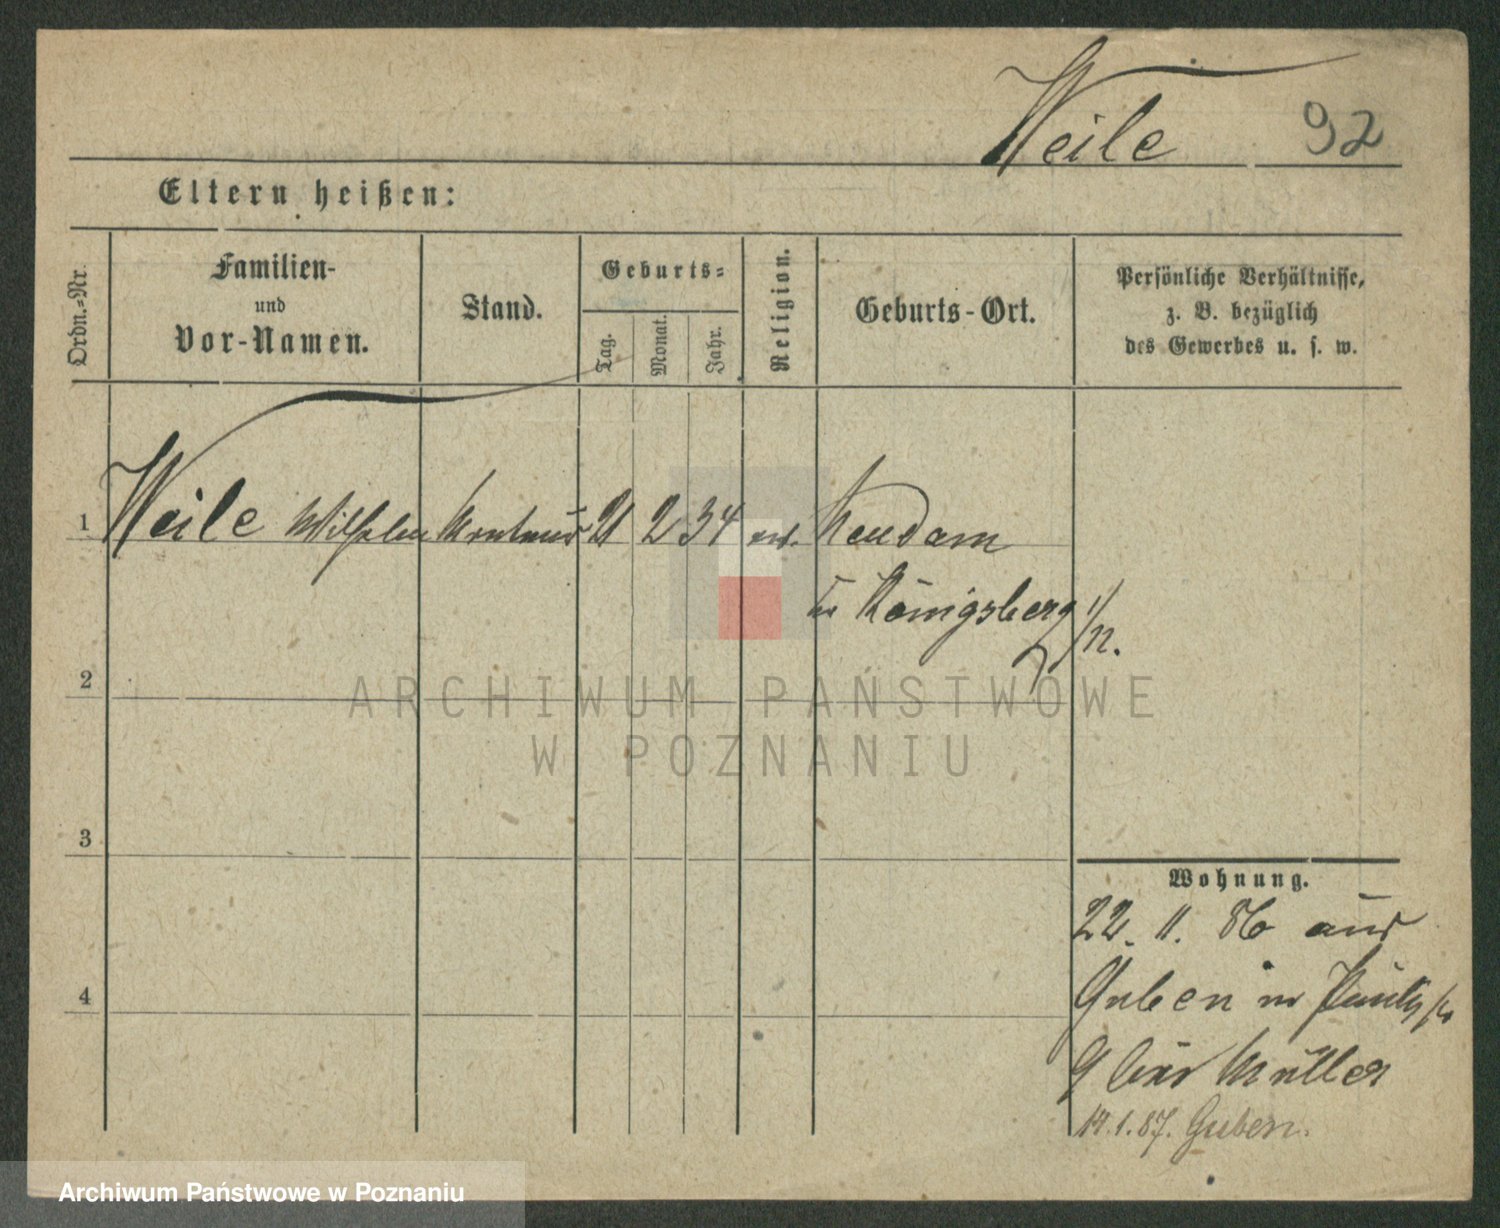 Weile 92
Eltern heißen:
Ordn.-Nr.
Familien-
und
Vor-Namen.
Stand.
Geburts-
Tag.
Monat.
Jahr.
Religion.
Geburts-Ort.
Persönliche Verhältnisse,
z. B. bezüglich
des Gewerbes u. s. w.
1 Weile Wilhelm 21 2 34 ev. Neudam
Königsberg /N.
2
ARCHIWUM PAŃSTWOWE
W POZNANIU
3
Wohnung.
22. 11. 86 aus
4
Guben
9 bei Müller
14.1.87. Guben.
Archiwum Państwowe w Poznaniu